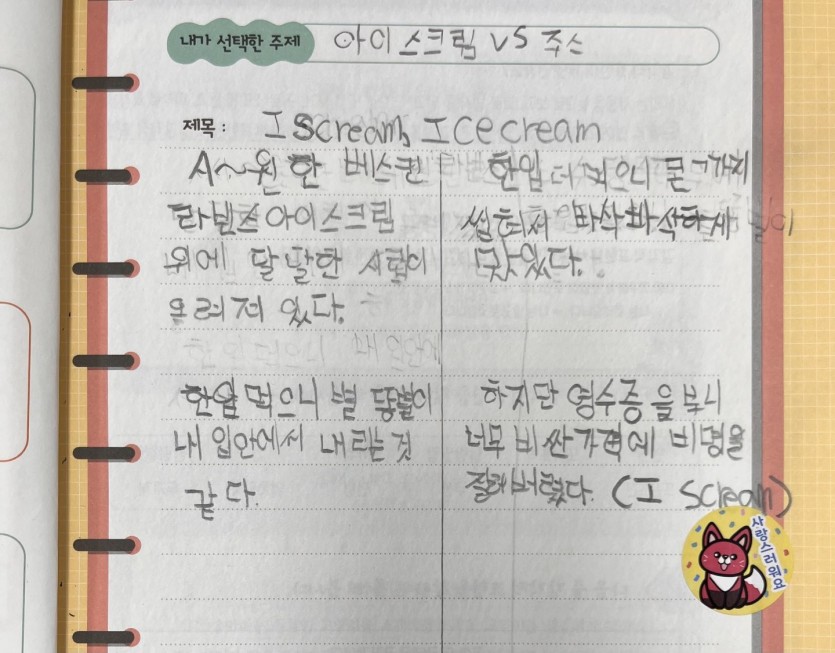 내가 선택한 주제 아이스크림 VS 주스
제목 : I scream, Ice cream
A~원한 베스킨
라빈스 아이스크림
위에 달달한 시럽이
올려져 있다.
한입 먹으니 별똥별이
내 입안에서 내리는 것
같다.
한입 더 먹으니 문
쌀 바삭바삭하
맛있다.
하지만 영수증을 보니
너무 비싼 가격에 비명을
질러버렸다. (I scream)
사랑스러워요